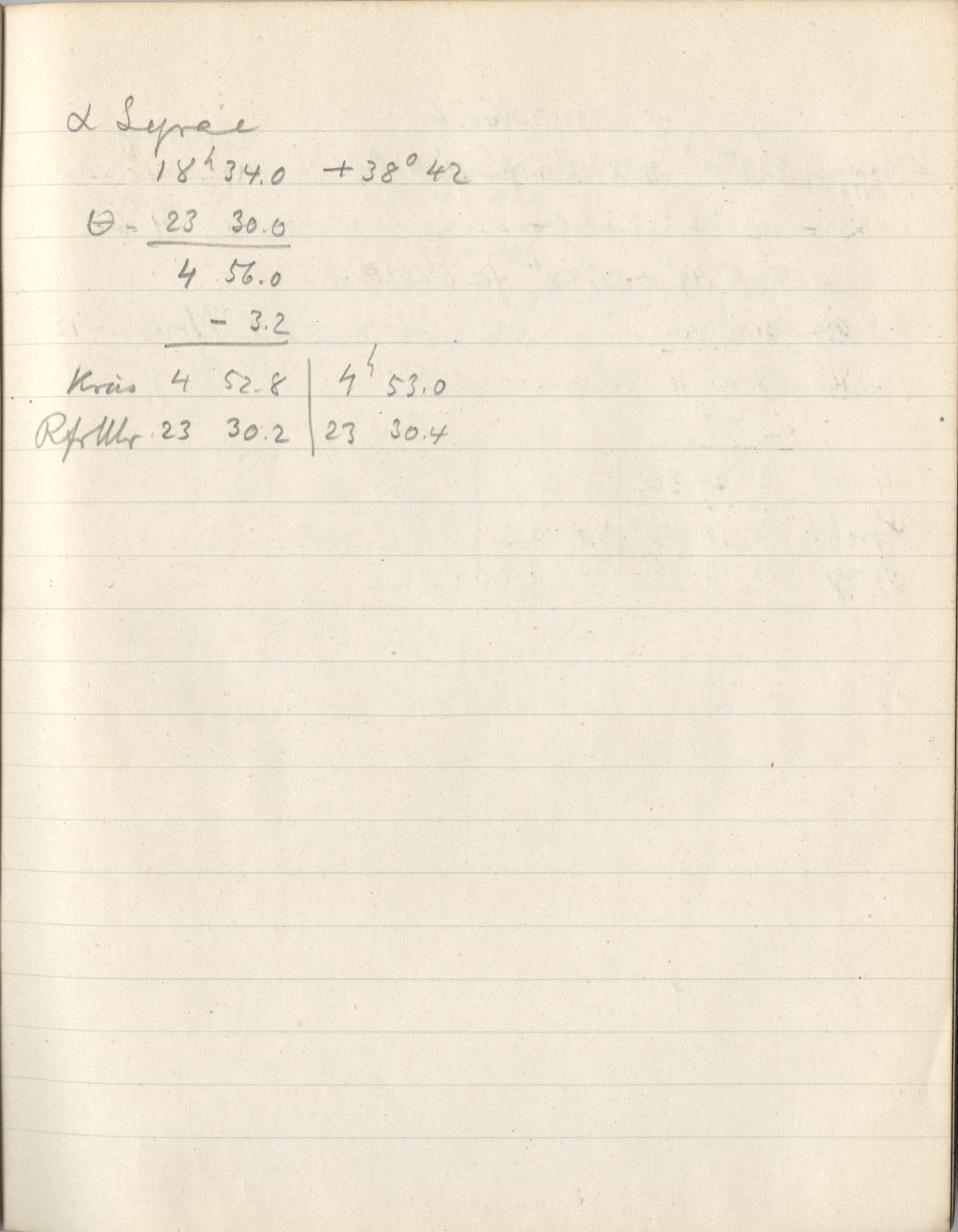 α Lyrae
18ʰ 34.0 +38° 42
θ = 23 30.0
4 56.0
− 3.2
Kreis 4 52.8 | 4ʰ 53.0
RfrUhr 23 30.2 | 23 30.4